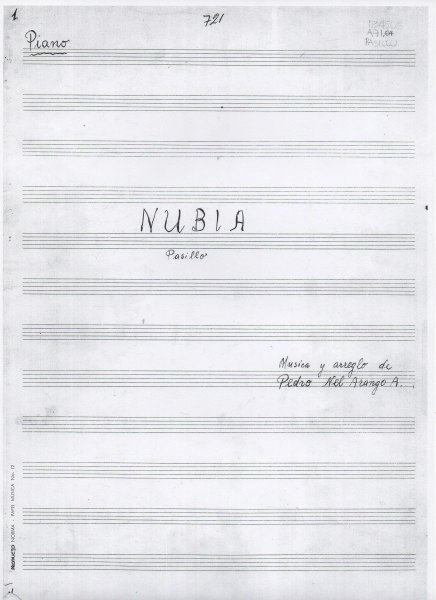 1
721
Piano
A71.04
PASILLO
NUBIA
Pasillo
Musica y arreglo de
Pedro Nel Arango A.
PRODUCTO NORMA - PAPEL MUSICA No. 12